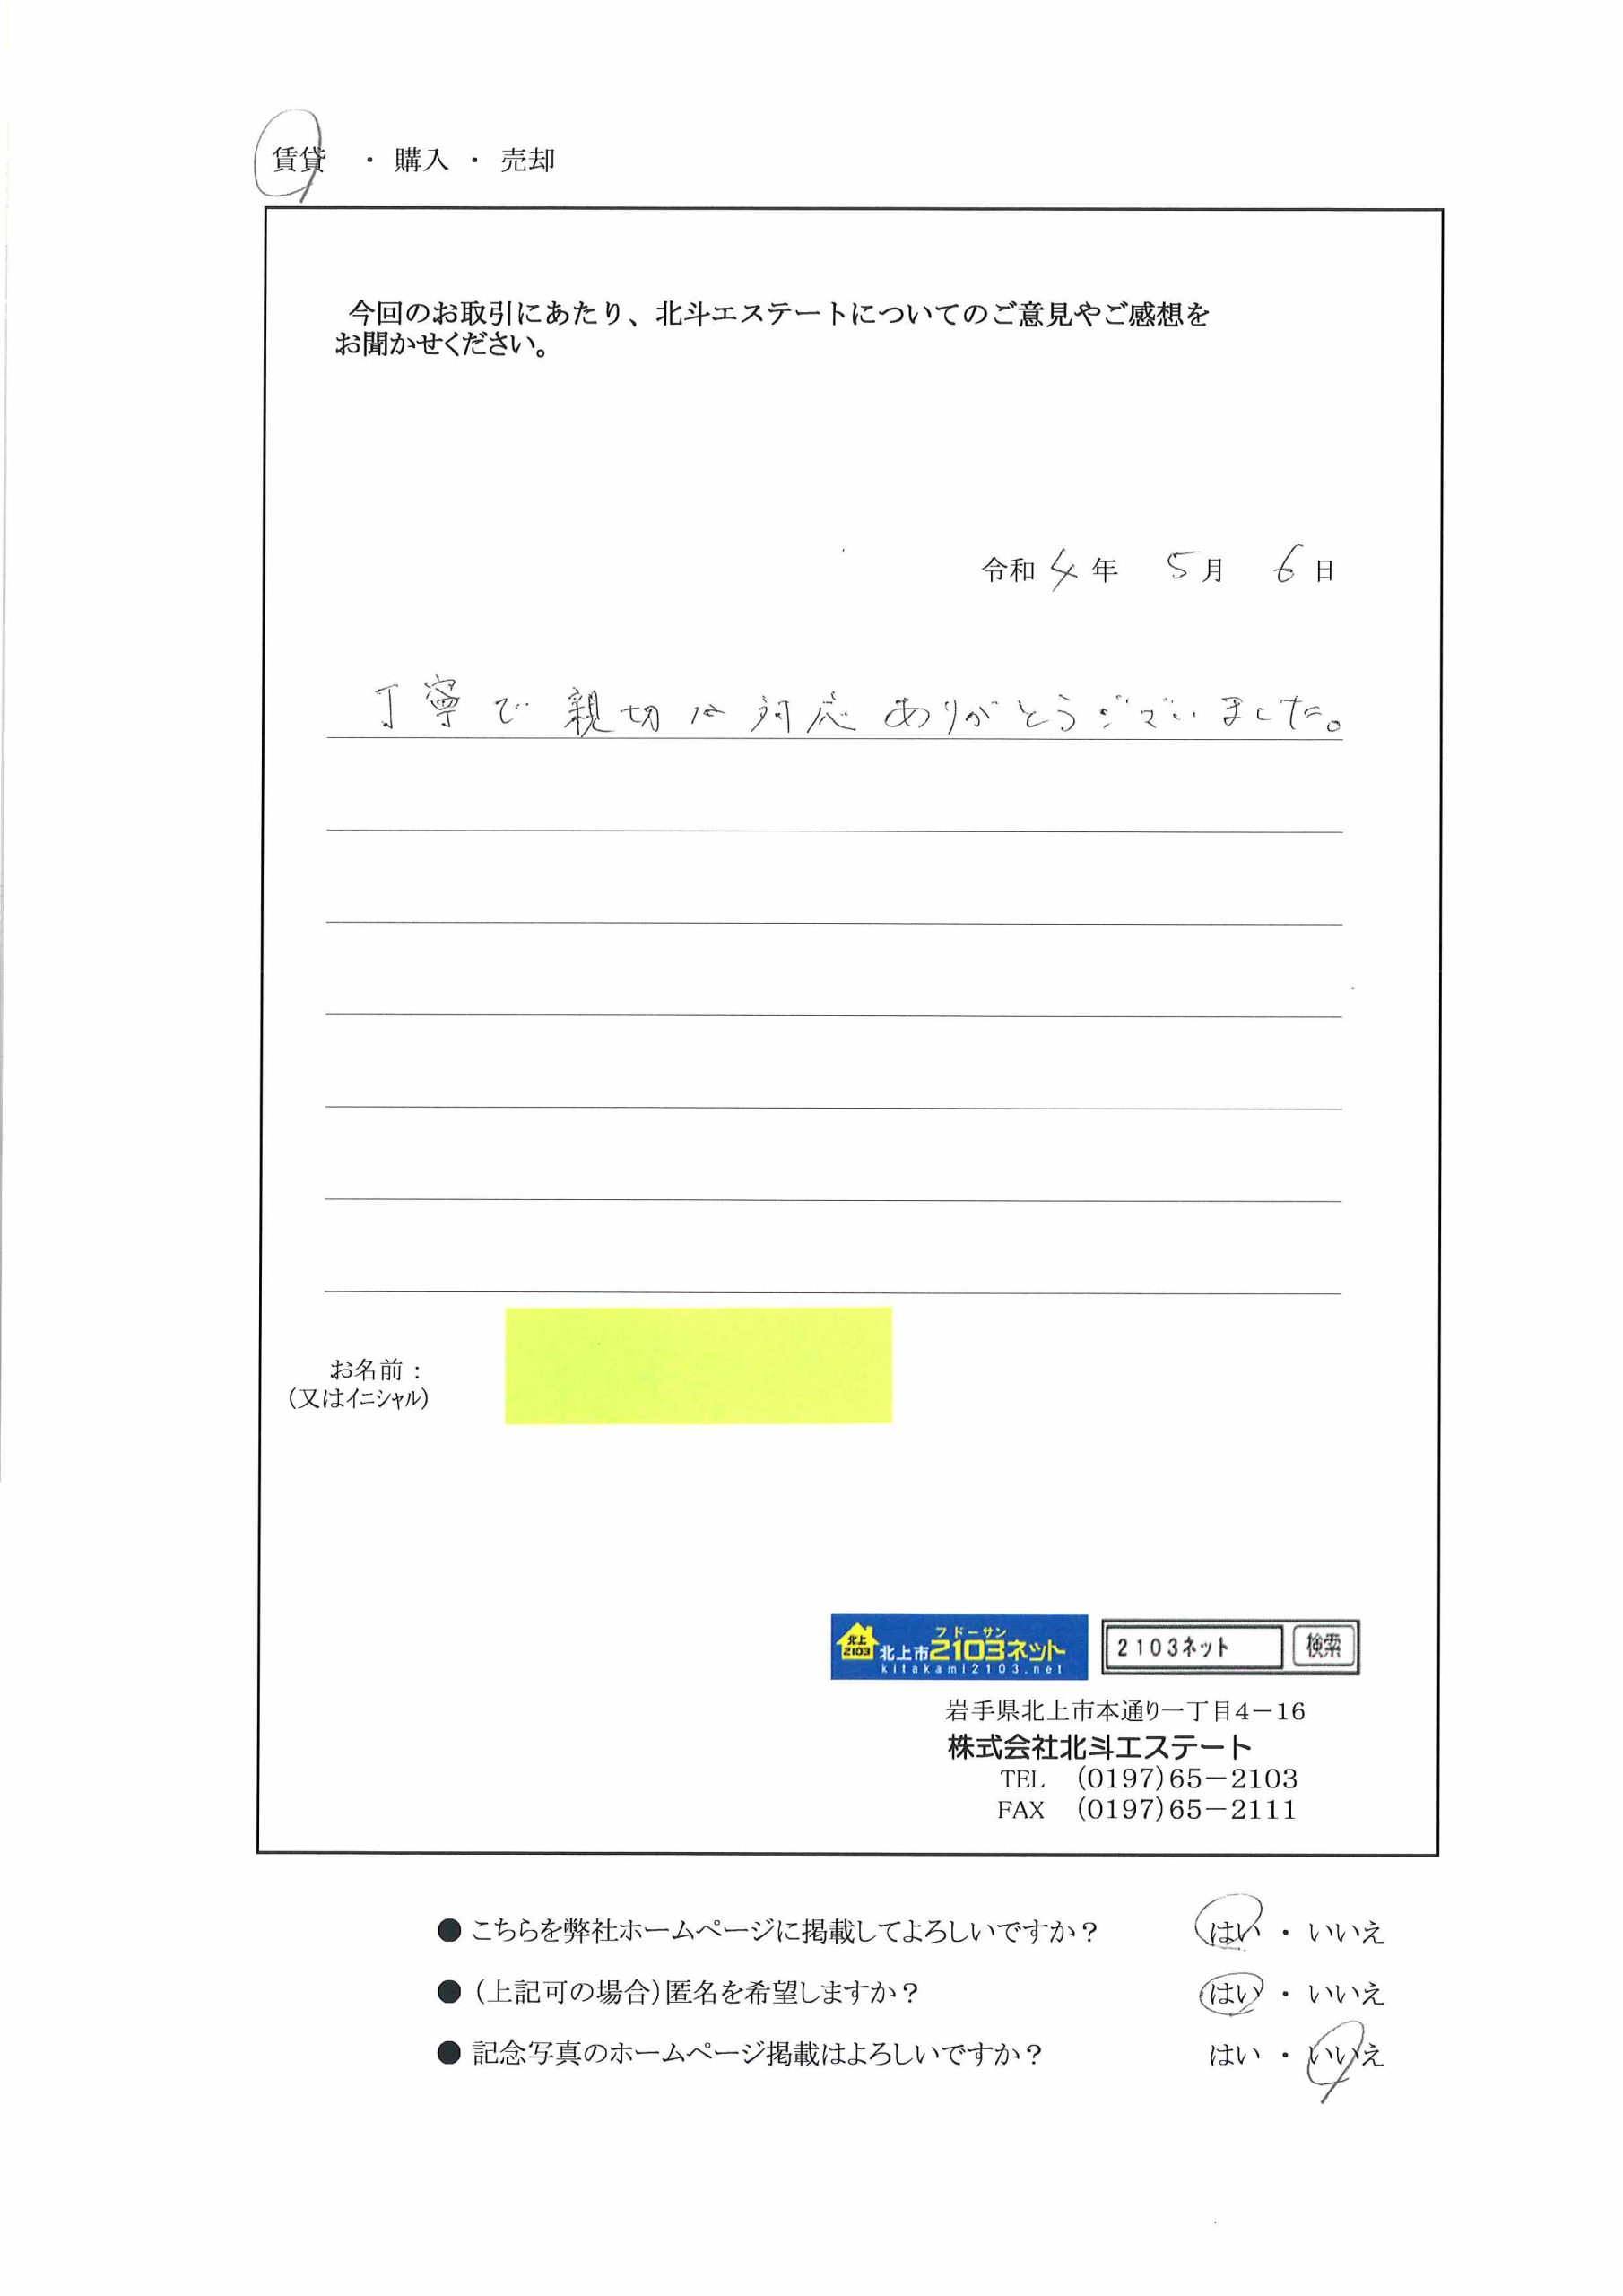 賃貸 ・ 購入 ・ 売却
今回のお取引にあたり、北斗エステートについてのご意見やご感想を
お聞かせください。
令和 4 年 5 月 6 日
丁寧で親切な対応ありがとうございました。
お名前：
（又はイニシャル）
北上
2103
フドーサン
北上市2103ネット
kitakami2103.net
2103ネット 検索
岩手県北上市本通り一丁目4－16
株式会社北斗エステート
TEL （0197）65－2103
FAX （0197）65－2111
● こちらを弊社ホームページに掲載してよろしいですか？ はい ・ いいえ
● （上記可の場合）匿名を希望しますか？ はい ・ いいえ
● 記念写真のホームページ掲載はよろしいですか？ はい ・ いいえ